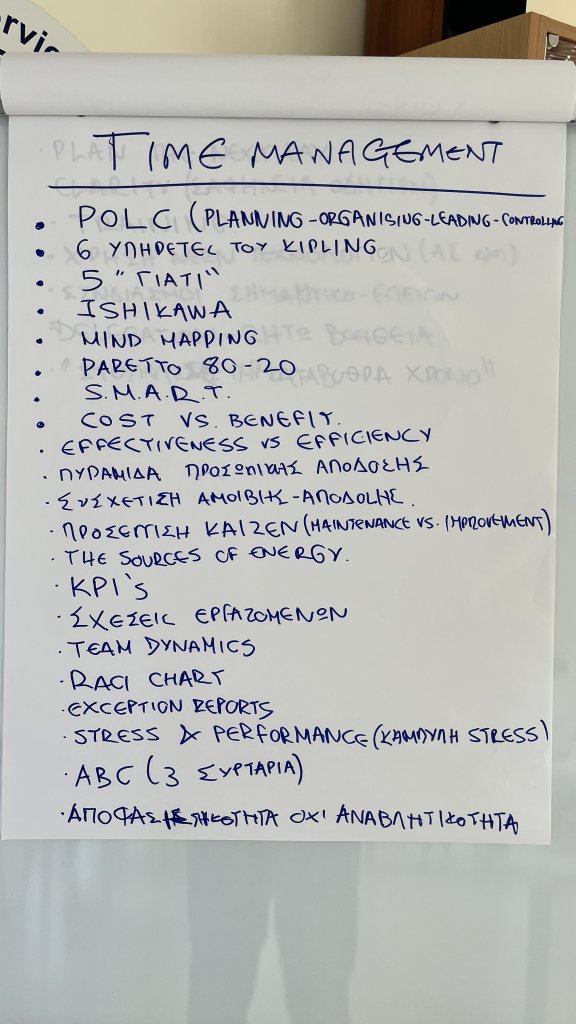 ervic
TIME MANAGEMENT
• POLC (PLANNING-ORGANISING-LEADING-CONTROLLING
• 6 ΥΠΗΡΕΤΕΣ ΤΟΥ KIPLING
• 5 "ΓΙΑΤΙ"
• ISHIKAWA
• MIND MAPPING
• PARETTO 80-20
• S.M.A.R.T.
• COST VS. BENEFIT.
• EFFECTIVENESS VS EFFICIENCY
• ΠΥΡΑΜΙΔΑ ΠΡΟΣΩΠΙΚΗΣ ΑΠΟΔΟΣΗΣ
• ΣΥΣΧΕΤΙΣΗ ΑΜΟΙΒΗΣ-ΑΠΟΔΟΣΗΣ.
• ΠΡΟΣΕΓΓΙΣΗ KAIZEN (MAINTENANCE VS. IMPROVEMENT)
• THE SOURCES OF ENERGY.
• KPI's
• ΣΧΕΣΕΙΣ ΕΡΓΑΖΟΜΕΝΩΝ
• TEAM DYNAMICS
• RACI CHART
• EXCEPTION REPORTS
• STRESS & PERFORMANCE (ΚΑΜΠΥΛΗ STRESS)
• ABC (3 ΣΥΡΤΑΡΙΑ)
• ΑΠΟΦΑΣΙΣΤΙΚΟΤΗΤΑ ΟΧΙ ΑΝΑΒΛΗΤΙΚΟΤΗΤΑ